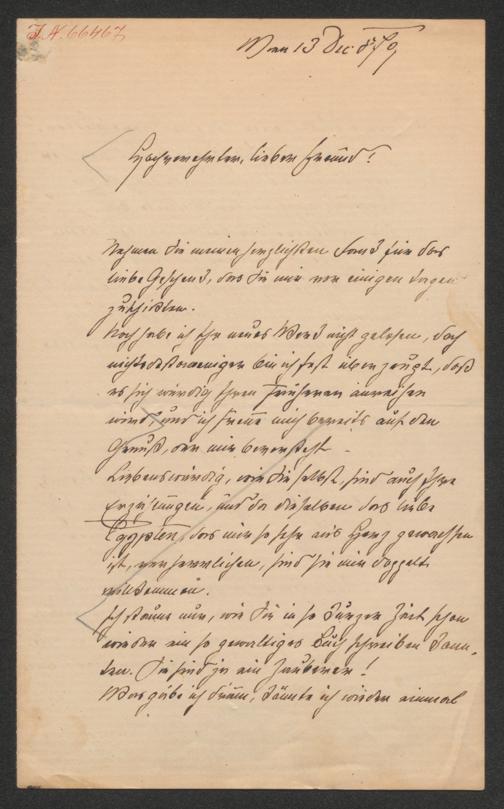 J.N. 66467
Wien 13 Dec 879
Hochverehrter, lieber Freund!
Nehmen Sie meinen herzlichsten Dank für das
liebe Geschenk, das Sie mir vor einigen Tagen
zuschickten.
Noch habe ich Ihr neues Werk nicht gelesen, doch
nichtsdestoweniger bin ich fest überzeugt, daß
es sich würdig Ihren früheren anreihen
wird, und ich freue mich bereits auf den
Genuß, der mir bevorsteht.
Liebenswürdig, wie Sie selbst, sind auch Ihre
Erzälungen, und da dieselben das liebe
Egypten, das mir so sehr ans Herz gewachsen
ist, verherrlichen, sind sie mir doppelt
willkommen.
Ich staune nur, wie Sie in so kurzer Zeit schon
wieder ein so gewaltiges Buch schreiben konn-
ten. Sie sind ja ein Zauberer!
Was gäbe ich drum, könnte ich wieder einmal